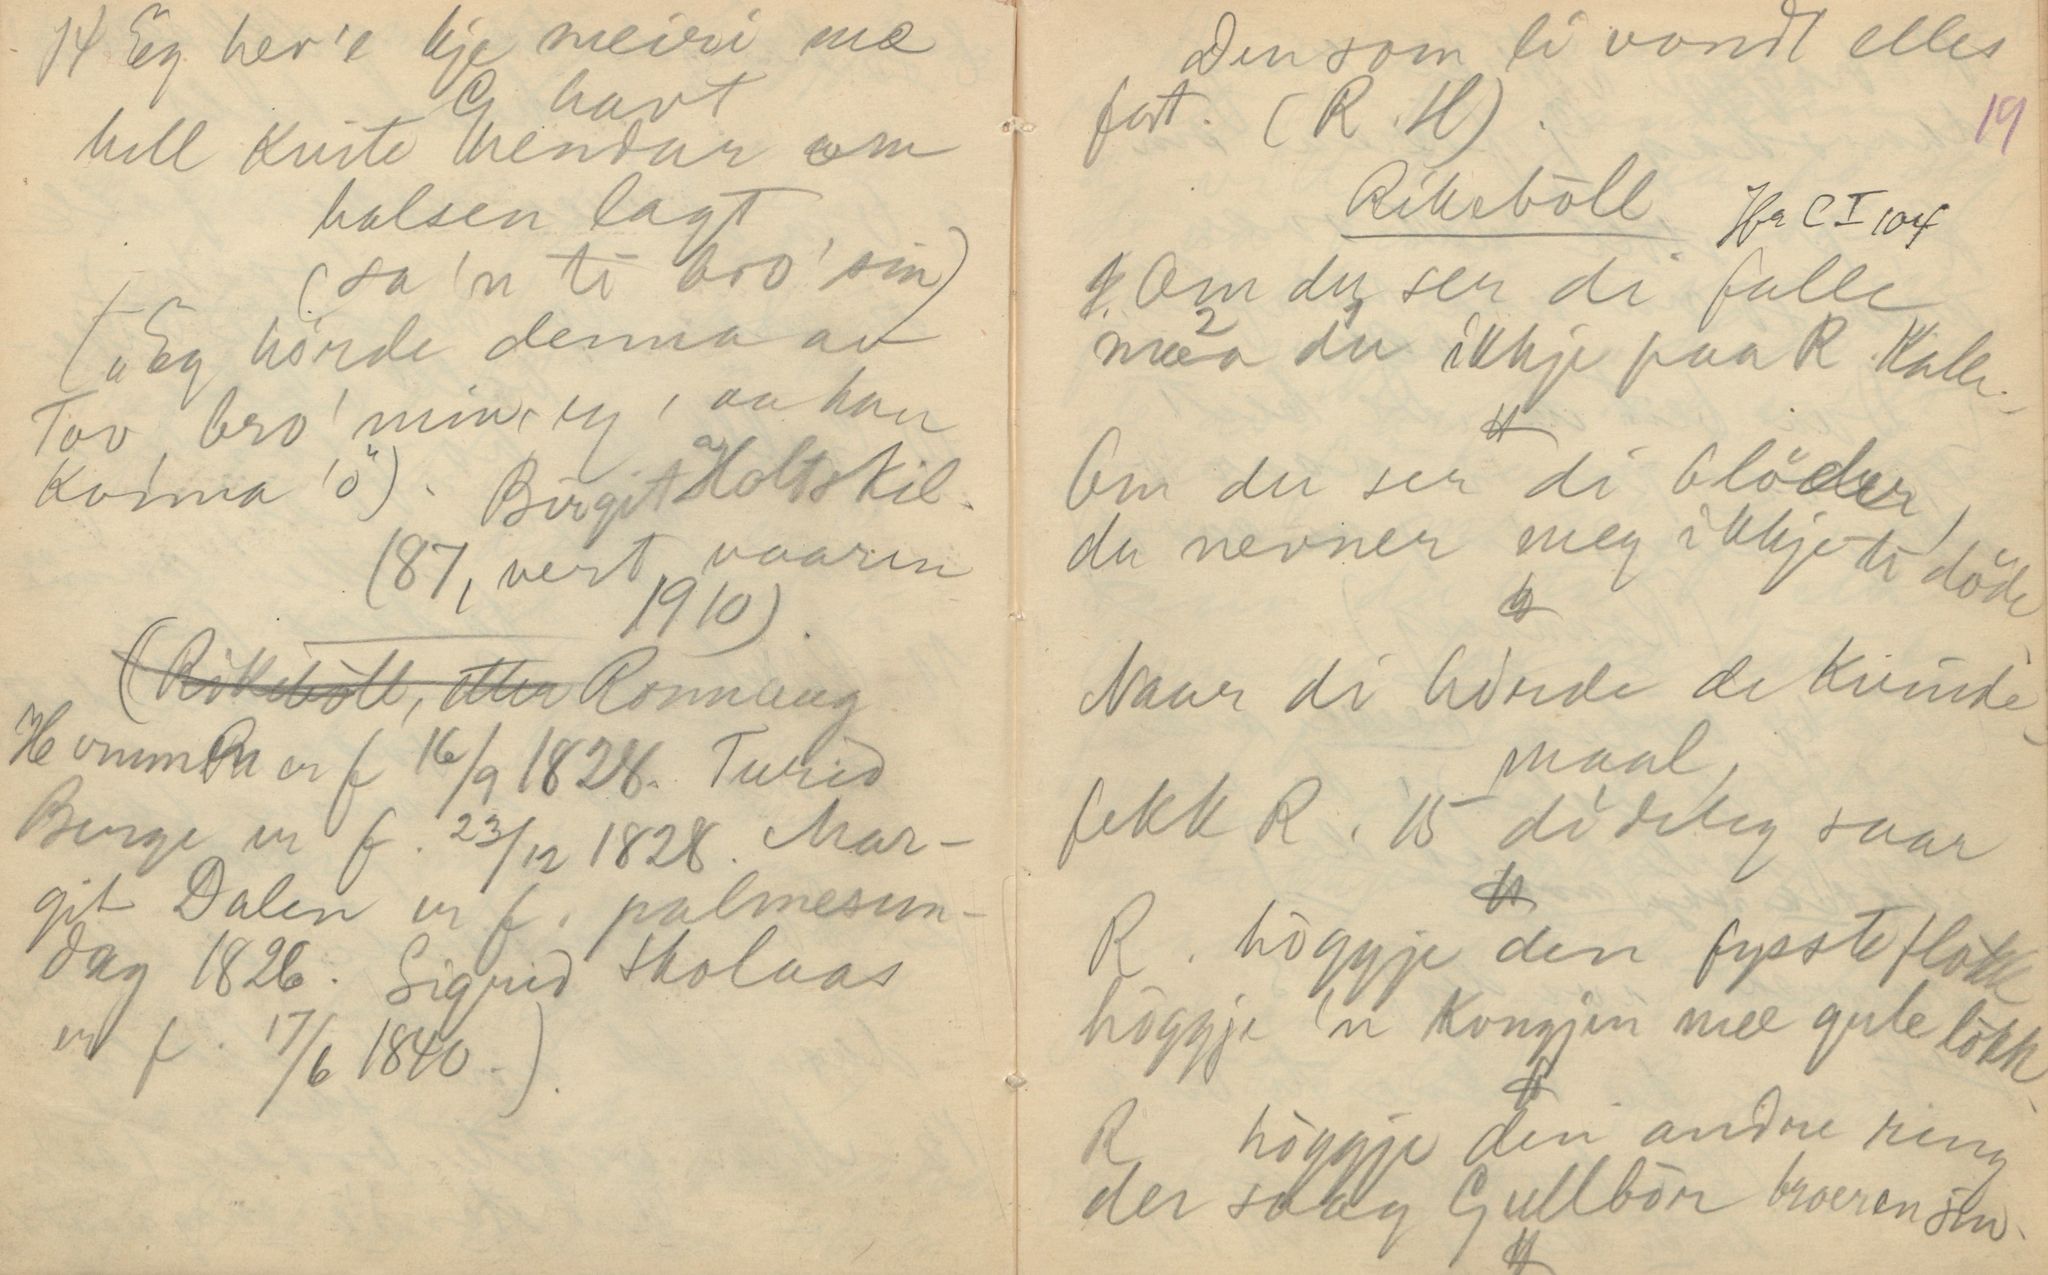 14 Eg hev'e kje meiri me
G havt
hell Kvite hendar om
halsen lagt
(sa 'n ti bro' sin)
("Eg hörde denna av
Tov, bro' min, eg, aa han
Kvima 'o").
Birgit Holtskil.
(87, vert vaaren
1910).
(Rikeböll, etter Ronnaug
Hommen er f 16/9 1828. Turid
Berge er f. 23/12 1828. Mar-
git Dalen er f. palmesun-
dag 1826. Sigrid Skolaas
er f. 17/6 1840.).
Den som li vondt elles
fort. (R. H).
19
Rikeböll
Hr C I 104
1. Om du ser di falle
mæ2a du1 ikkje paa R. Kalle.
Om du ser di blöder,
du nevner meg ikkje ti döde
Naar di hörde de Kvinde-
maal,
fekk R. 15 dideleg saar
R. höggje den fysste flokk
höggje 'n Kongjen mee gule lokk.
R höggje den andre ring
der saag Gullbör broeren sin.